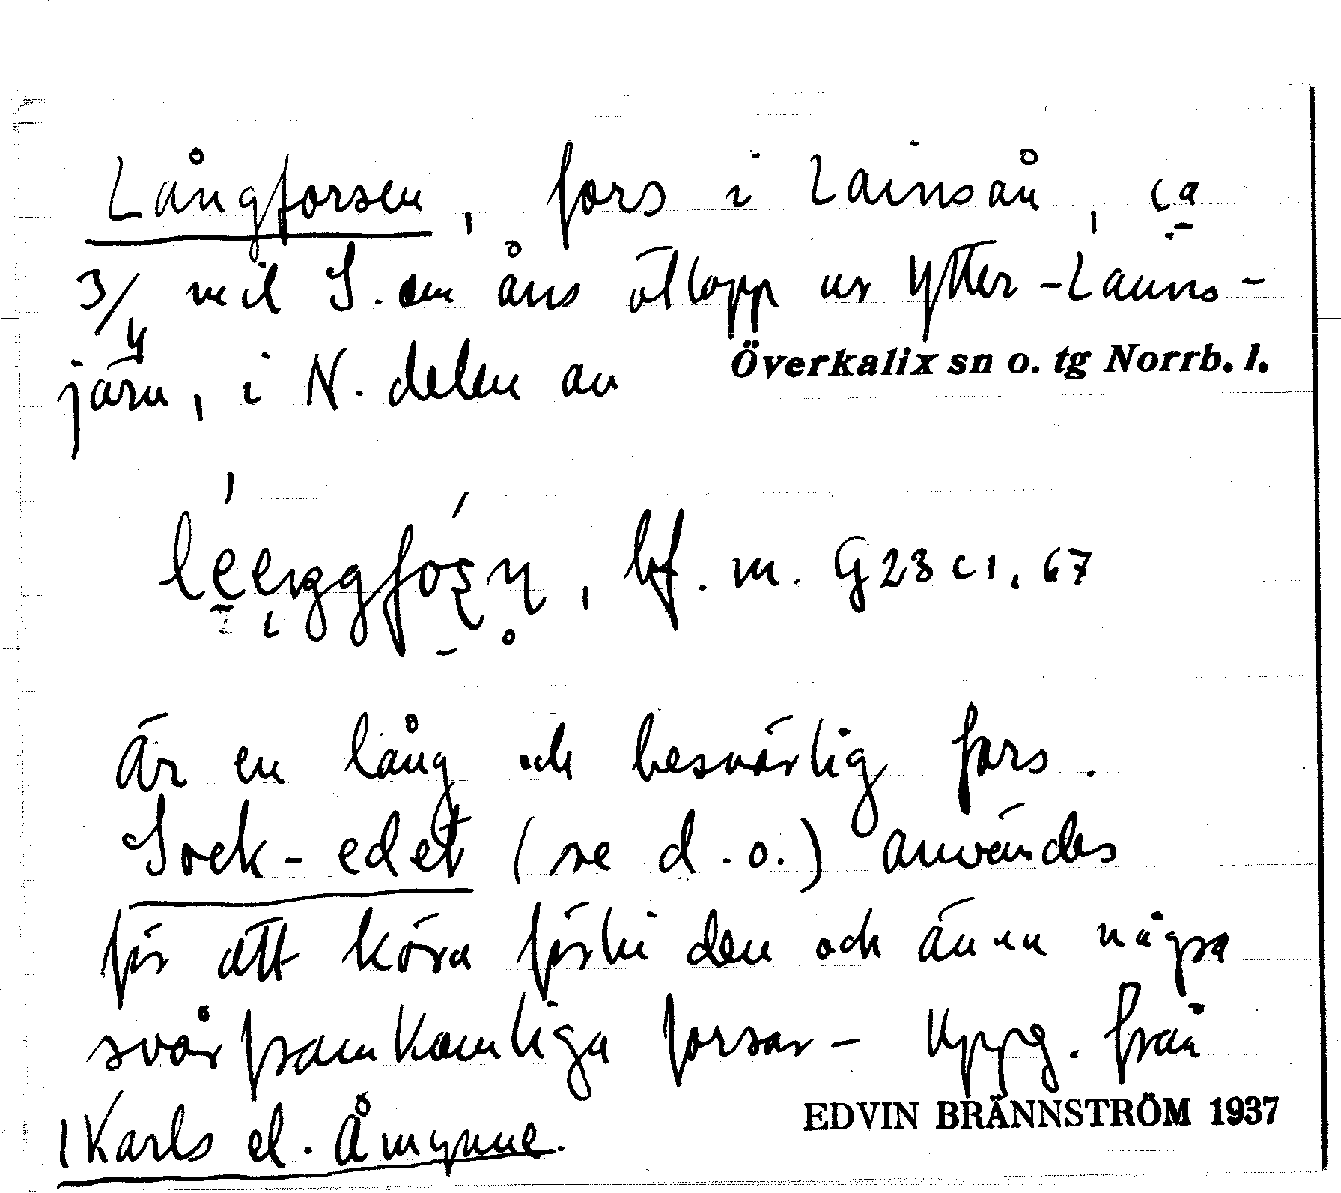 Långforsen, fors i Lainsån, ca
3/4 mil S. om åns utlopp ur Ytter-Lains-
järn, i N. delen av Överkalix sn o. tg Norrb. l.
bf. m. G23 c1, 67
Är en lång och besvärlig fors.
Sock-edet (se d.o.) användes
för att köra förbi den och ännu några
svårframkomliga forsar - Uppg. från
Karls el. Åmynne. EDVIN BRÄNNSTRÖM 1937